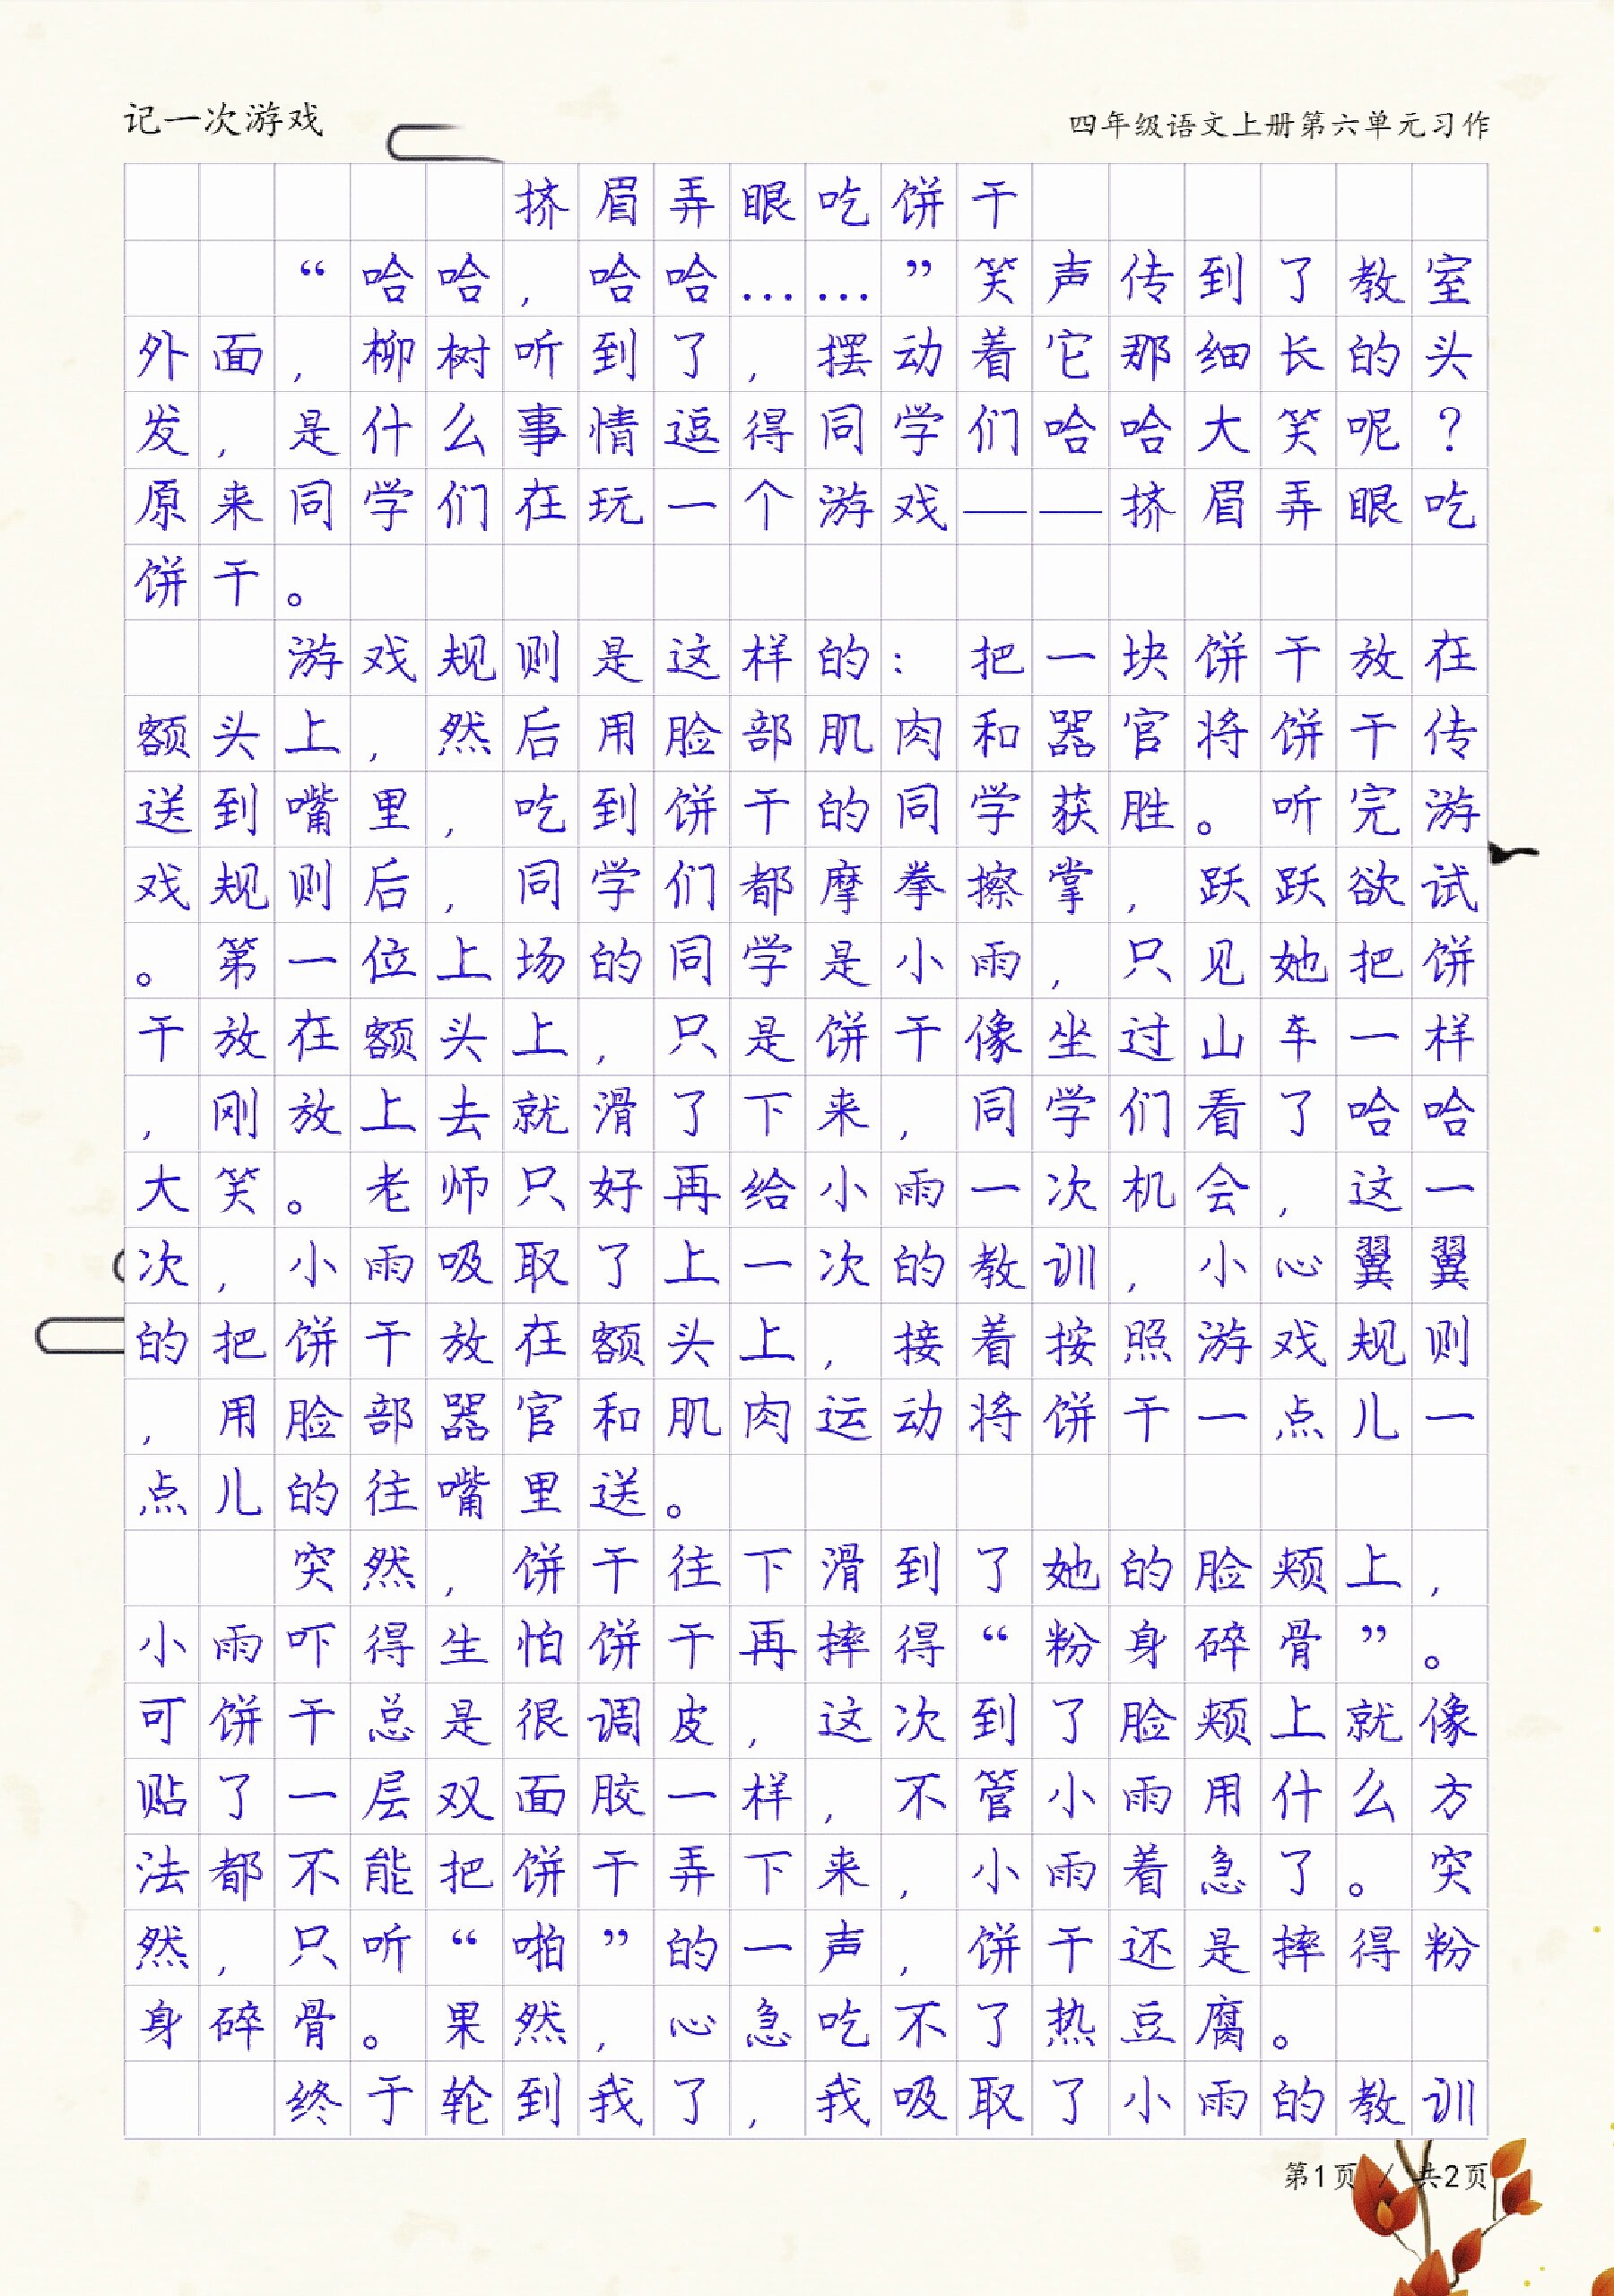 记一次游戏
四年级语文上册第六单元习作
挤眉弄眼吃饼干
“哈哈，哈哈……”笑声传到了教室
外面，柳树听到了，摆动着它那细长的头
发，是什么事情逗得同学们哈哈大笑呢？
原来同学们在玩一个游戏——挤眉弄眼吃
饼干。
游戏规则是这样的：把一块饼干放在
额头上，然后用脸部肌肉和器官将饼干传
送到嘴里，吃到饼干的同学获胜。听完游
戏规则后，同学们都摩拳擦掌，跃跃欲试
。第一位上场的同学是小雨，只见她把饼
干放在额头上，只是饼干像坐过山车一样
，刚放上去就滑了下来，同学们看了哈哈
大笑。老师只好再给小雨一次机会，这一
次，小雨吸取了上一次的教训，小心翼翼
的把饼干放在额头上，接着按照游戏规则
，用脸部器官和肌肉运动将饼干一点儿一
点儿的往嘴里送。
突然，饼干往下滑到了她的脸颊上，
小雨吓得生怕饼干再摔得“粉身碎骨”。
可饼干总是很调皮，这次到了脸颊上就像
贴了一层双面胶一样，不管小雨用什么方
法都不能把饼干弄下来，小雨着急了。突
然，只听“啪”的一声，饼干还是摔得粉
身碎骨。果然，心急吃不了热豆腐。
终于轮到我了，我吸取了小雨的教训
第1页 / 共2页